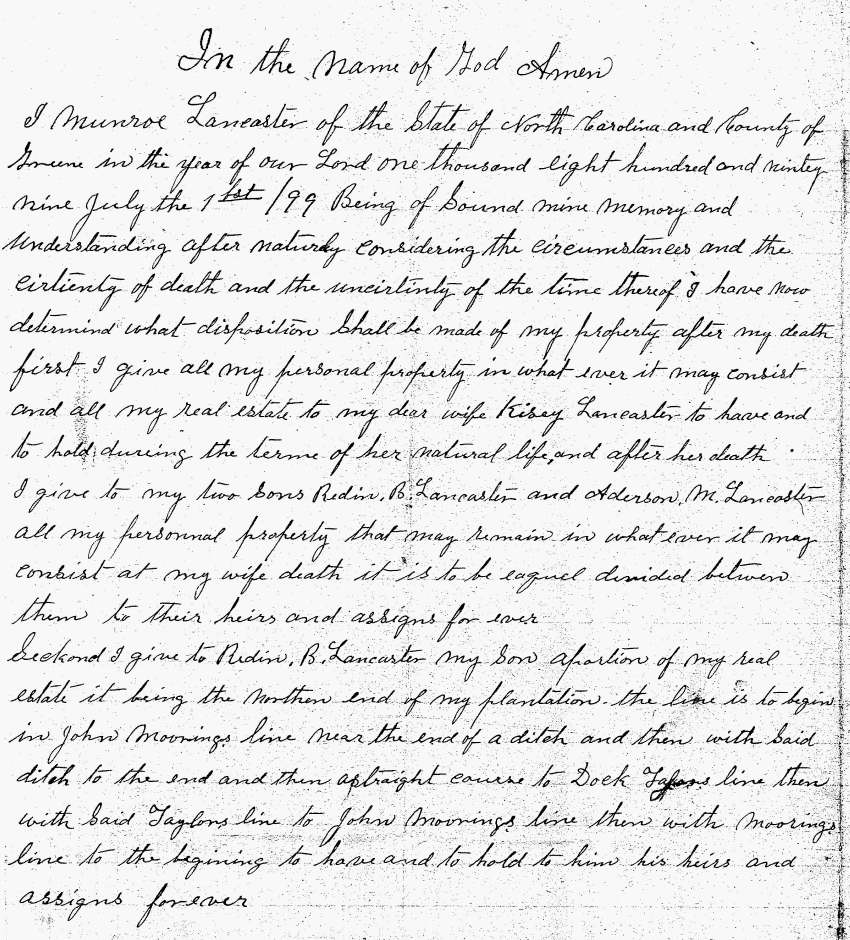 In the name of God Amen
I Munroe Lancaster of the State of North Carolina and County of
Greene in the year of our Lord one thousand eight hundred and nintey
nine July the 1st /99 Being of Sound mine memory and
understanding after naturely considering the circumstances and the
cirtienty of death and the uncirtinty of the time thereof I have now
determind what disposition Shall be made of my property after my death
first I give all my personal property in what ever it may consist
and all my real estate to my dear wife Kisey Lancaster to have and
to hold dureing the terme of her natural life, and after her death
I give to my two Sons Redin. B. Lancaster and Aderson. M. Lancaster
all my personnal property that may remain in what ever it may
consist at my wife death it is to be eaquel devided between
them to their heirs and assigns for ever
Seckond I give to Redin. B. Lancaster my Son aportion of my real
estate it being the northen end of my plantation. the line is to begin
in John Moorings line near the end of a ditch and then with Said
ditch to the end and then astraight course to Dock line then
with Said Taylors line to John Moorings line then with Moorings
line to the begining to have and to hold to him his heirs and
assigns forever